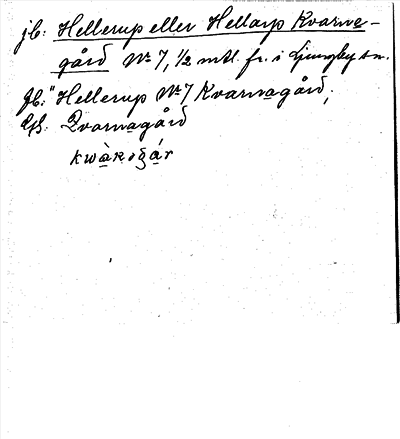 jb: Hellerup eller Hellarp Kvarna-
gård No 7, 1/2 mtl. fr. i Ljungby sn.
Jb: "Hellerup No 7 Kvarnagård;
Gfb: Qvarnagård